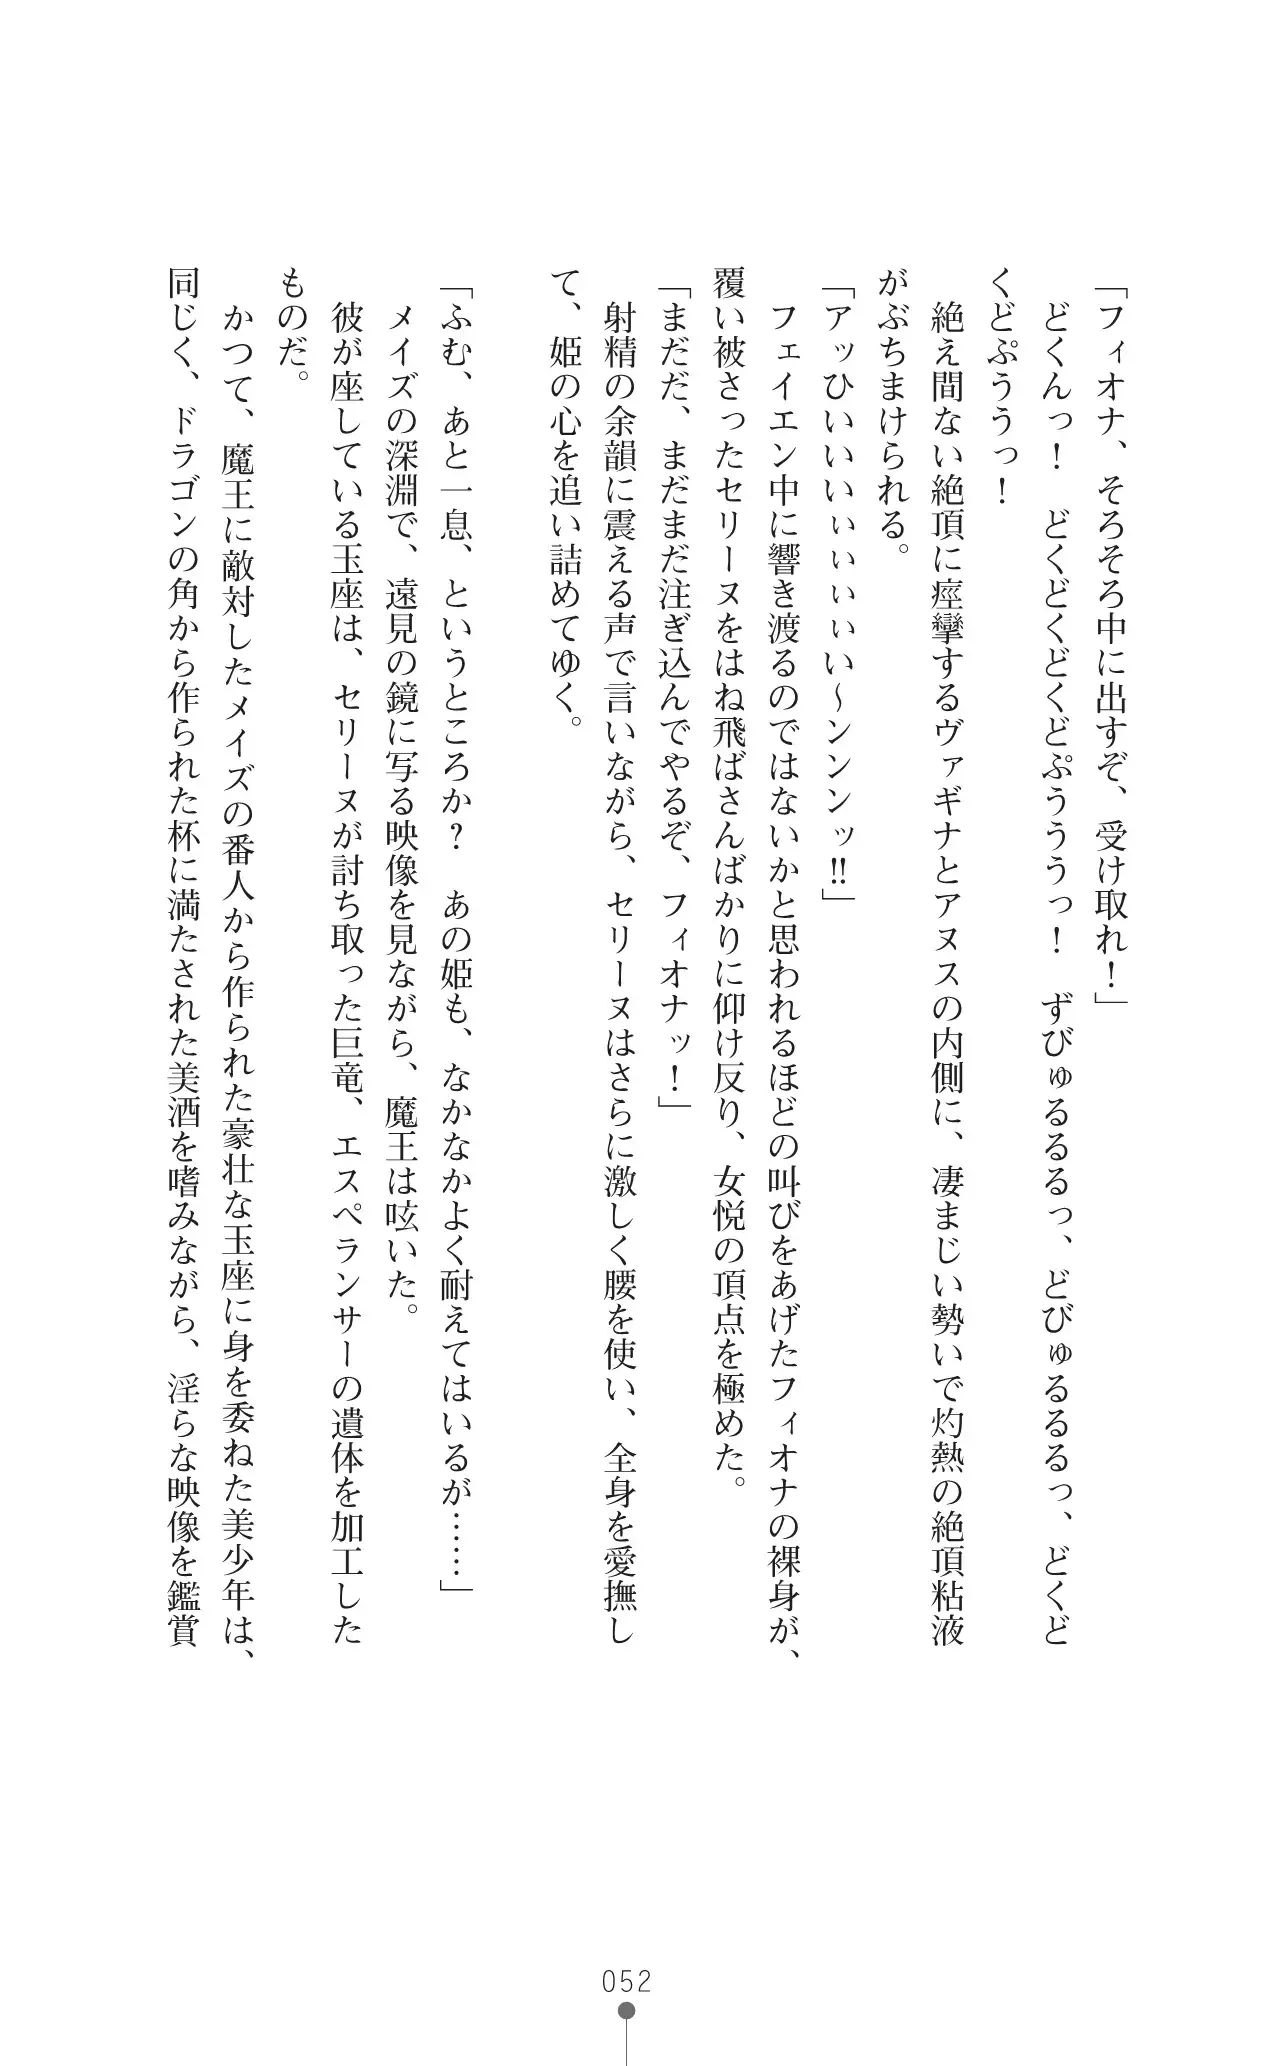 「フィオナ、そろそろ中に出すぞ、受け取れ！」
　どくんっ！　どくどくどくどぷうううっ！　ずびゅるるるっ、どびゅるるるっ、どくど
くどぷううっ！
　絶え間ない絶頂に痙攣するヴァギナとアヌスの内側に、凄まじい勢いで灼熱の絶頂粘液
がぶちまけられる。
「アッひいいいぃぃぃぃい～ンンンッ!!」
　フェイエン中に響き渡るのではないかと思われるほどの叫びをあげたフィオナの裸身が、
覆い被さったセリーヌをはね飛ばさんばかりに仰け反り、女悦の頂点を極めた。
「まだだ、まだまだ注ぎ込んでやるぞ、フィオナッ！」
　射精の余韻に震える声で言いながら、セリーヌはさらに激しく腰を使い、全身を愛撫し
て、姫の心を追い詰めてゆく。
「ふむ、あと一息、というところか？　あの姫も、なかなかよく耐えてはいるが……」
　メイズの深淵で、遠見の鏡に写る映像を見ながら、魔王は呟いた。
　彼が座している玉座は、セリーヌが討ち取った巨竜、エスペランサーの遺体を加工した
ものだ。
　かつて、魔王に敵対したメイズの番人から作られた豪壮な玉座に身を委ねた美少年は、
同じく、ドラゴンの角から作られた杯に満たされた美酒を嗜みながら、淫らな映像を鑑賞
052